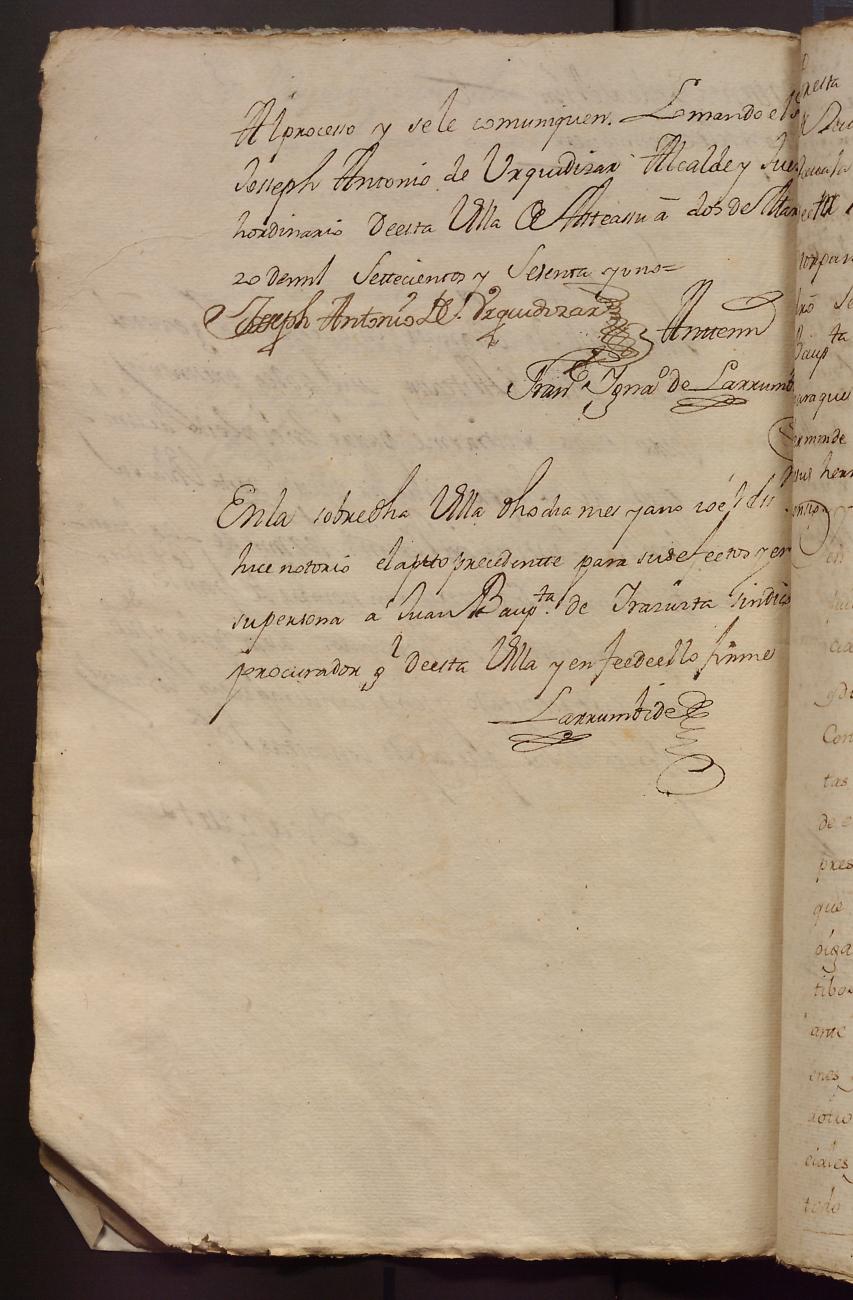 Al processo y se le comuniquen. Lo mando el S
Joseph Antonio de Urquidizar Alcalde y Juez
hordinario de esta Villa de Asteasu â dos de Mar
zo de mil settecientos y sesenta y uno=
Joseph Antonio de Urquidizar Antemi
Franco Ignao de Larrumb
En la sobredha Villa dho dia mes y año yo el
hice notorio el autto precedentte para sus efectos y en
su persona a Juan Baupta de Irazuzta sindico
procurador gl de esta Villa y en fee de ello firme
Larrumbide